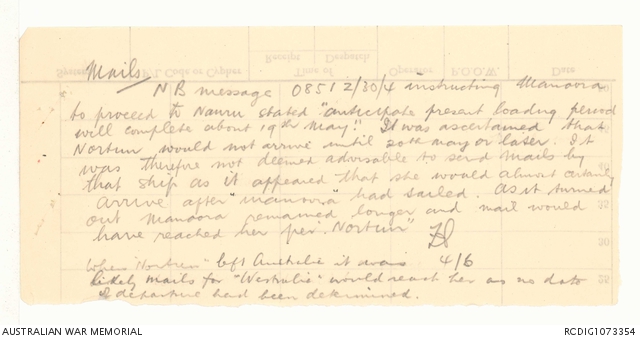 Mails
NB message 0851 2/30/4 instructing Manoora
to proceed to Nauru stated "anticipate present loading period
will complete about 19th May." It was ascertained that
Nortun would not arrive until 20th May or later. It
was therefore not deemed advisable to send mails by
that ship as it appeared that she would almost certainly
arrive after "Manoora" had sailed. As it turned
out Manoora remained longer and mail would
have reached her per "Nortun"
4/6
When "Nortun" left Australia it was
likely mails for "Westralia" would reach her as no date
of departure had been determined.
System
V/L Code or Cypher
Receipt
Time of
Despatch
Operator
P.O.O.W.
Date
30
25
AUSTRALIAN WAR MEMORIAL
RCDIG1073354